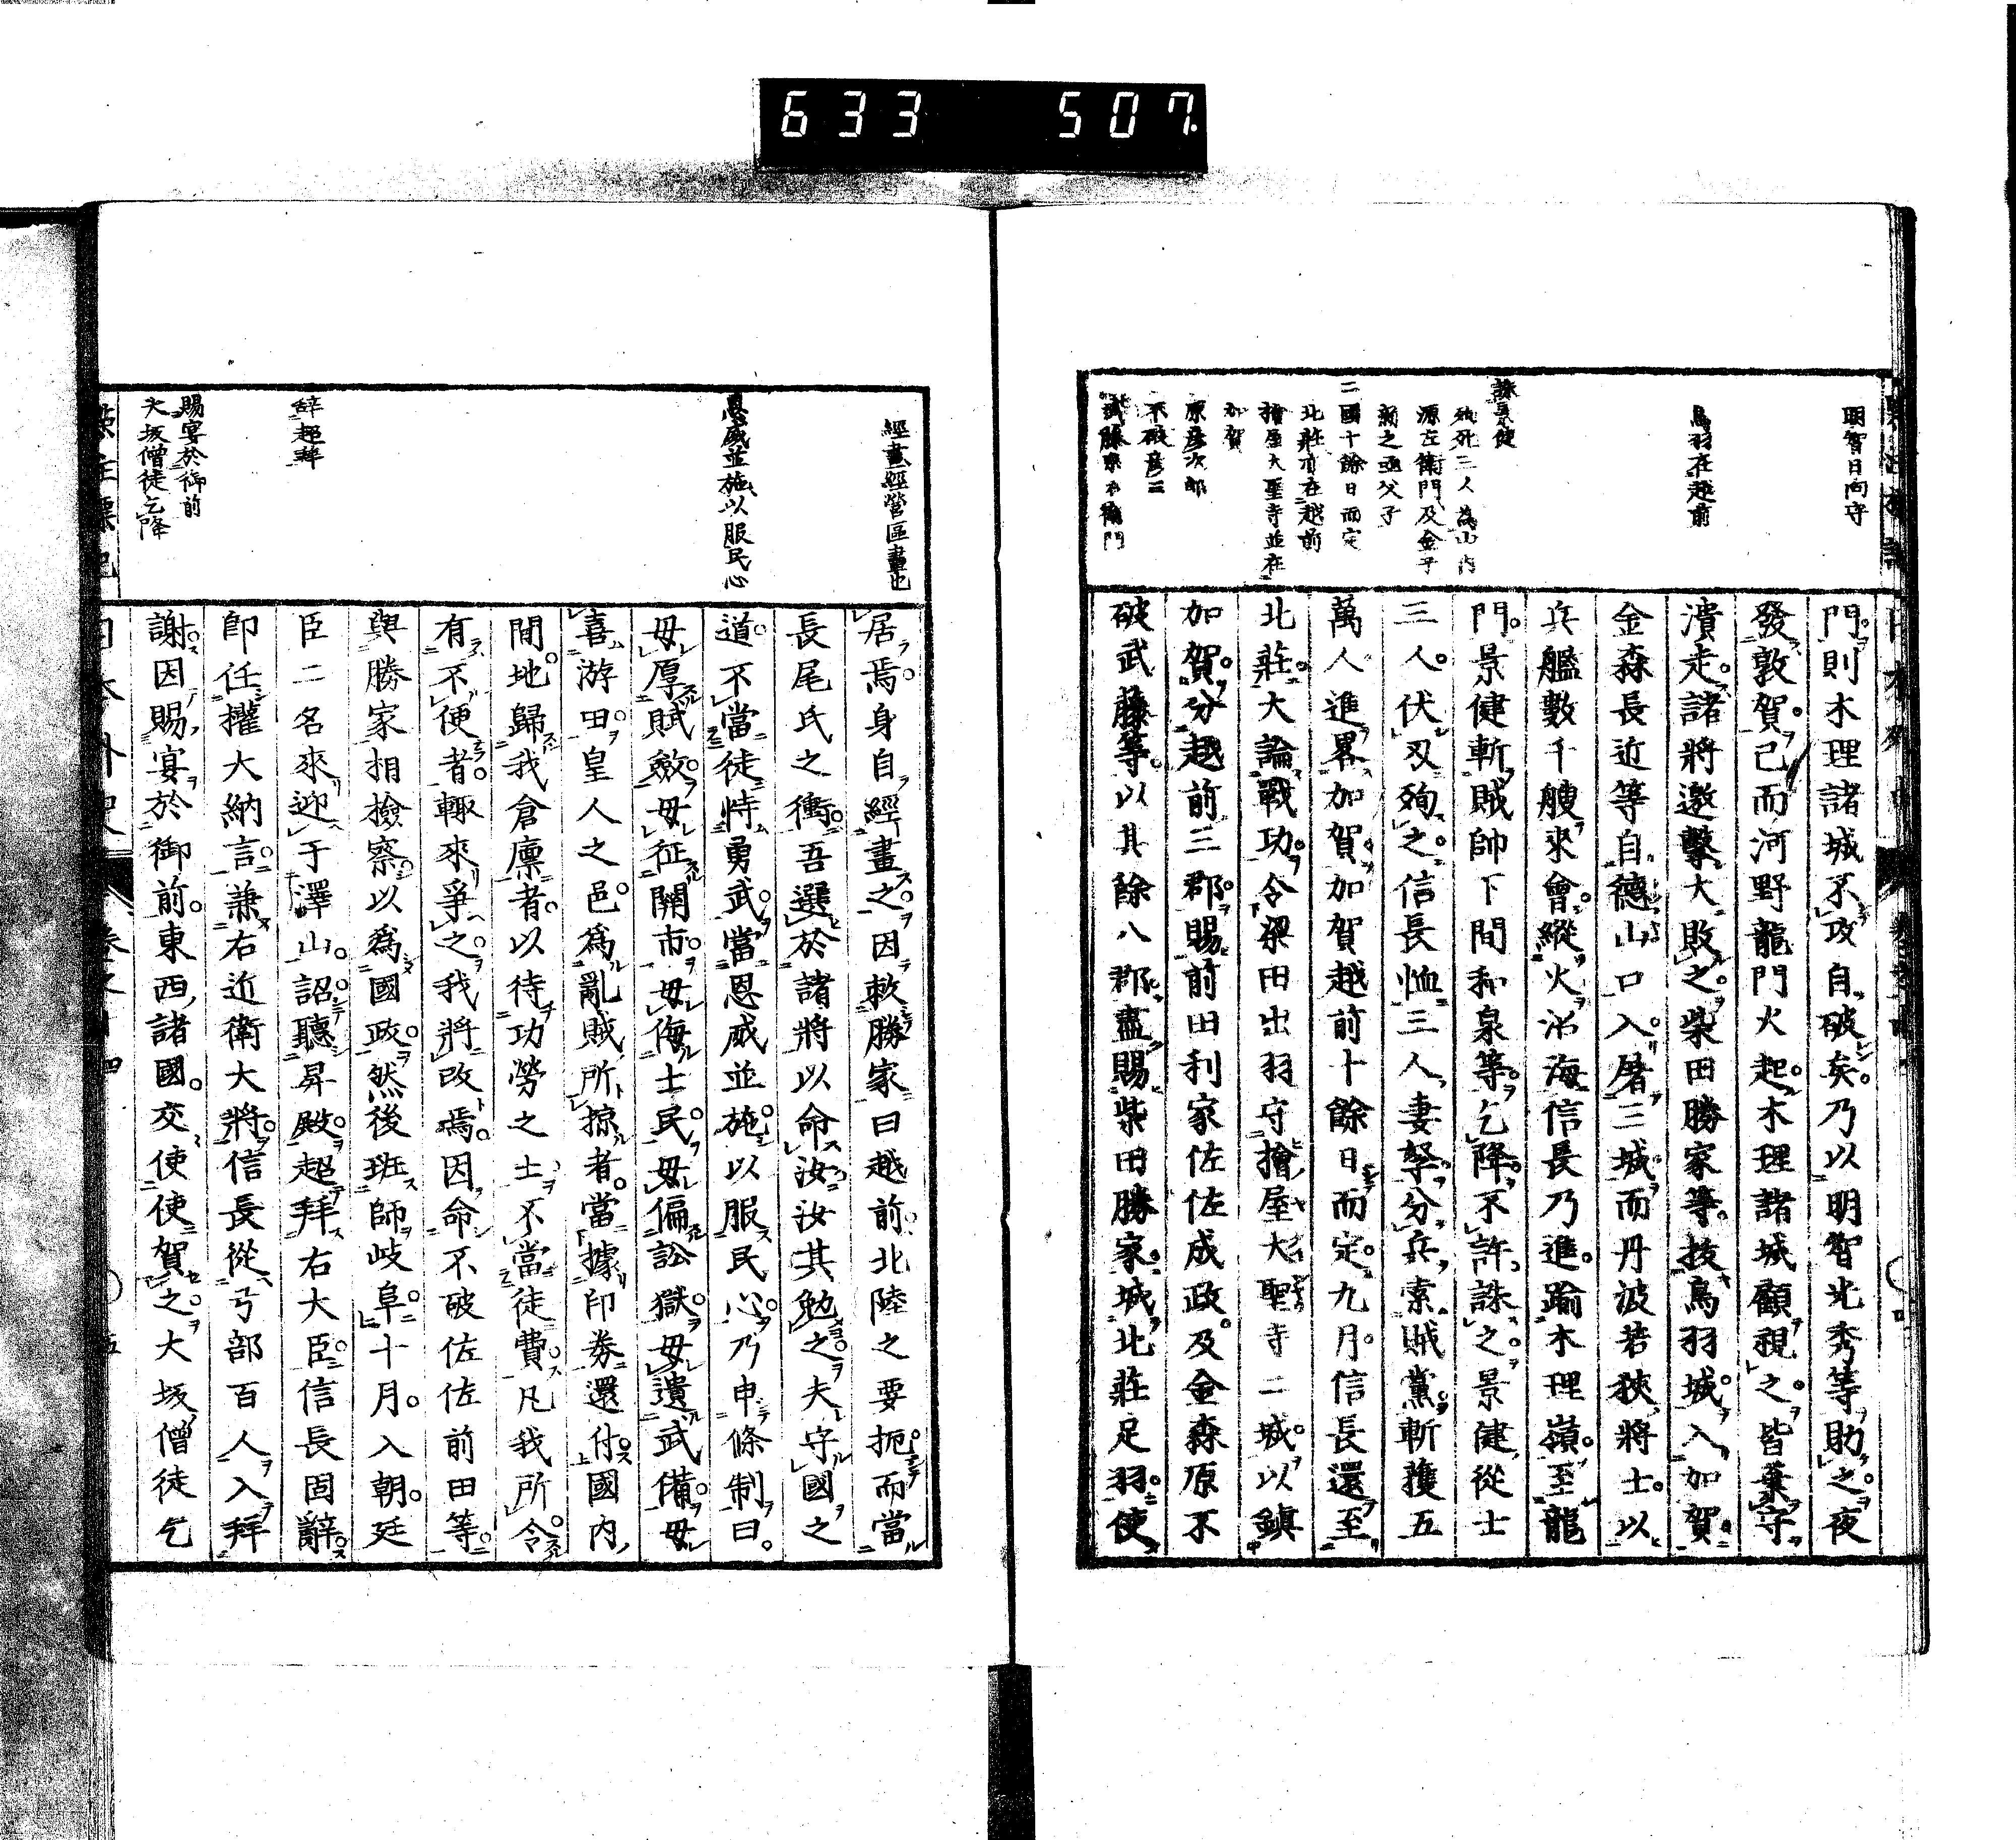 633 507
明智日向守
鳥羽在越前
誅景健
殉死三人為山内
源左衛門及金子
新之亟父子
二國十餘日而定
北莊市在越前
檜屋大聖寺並在
加賀
原彦次郎
不破彦三
門則木理諸城不攻自破矣乃以明智光秀等助之夜
發敦賀已而河野龍門火起木理諸城顧視之皆棄守
潰走諸將邀擊大敗之柴田勝家等拔鳥羽城入加賀
金森長近等自德山口入屠三城而丹波若狹將士以
兵艦數千艘來會縱火沿海信長乃進踰木理嶺至龍
門景健斬賊帥下間和泉等乞降不許誅之景健從士
三人伏刄殉之信長恤三人妻孥分兵索賊黨斬獲五
萬人進畧加賀加賀越前十餘日而定九月信長還至
北莊大論戰功令梁田出羽守檜屋大聖寺二城以鎮
加賀分越前三郡賜前田利家佐佐成政及金森原不
破武藤等以其餘八郡盡賜柴田勝家城北莊足羽使
經畫經營區畫也
恩威並施以服民心
辭超拜
賜宴於御前
大坂僧徒乞降
居焉身自經畫之因敕勝家曰越前北陸之要扼而當
長尾氏之衝吾選於諸將以命汝汝其勉之夫守國之
道不當徒恃勇武當恩威並施以服民心乃申條制曰
毋厚賦斂毋征關市毋侮士民毋偏訟獄毋遺武備毋
喜游田皇人之邑爲亂賊所掠者當據印券還付國内
閒地歸我倉廩者以待功勞之士不當徒費凡我所令
有不便者輙來爭之我將改焉因命不破佐佐前田等
與勝家相撿察以爲國政然後班師岐阜十月入朝廷
臣二名來迎于澤山詔聽昇殿超拜右大臣信長固辭
卽任權大納言兼右近衛大將信長從弓部百人入拜
謝因賜宴於御前東西諸國交使使賀之大坂僧徒乞